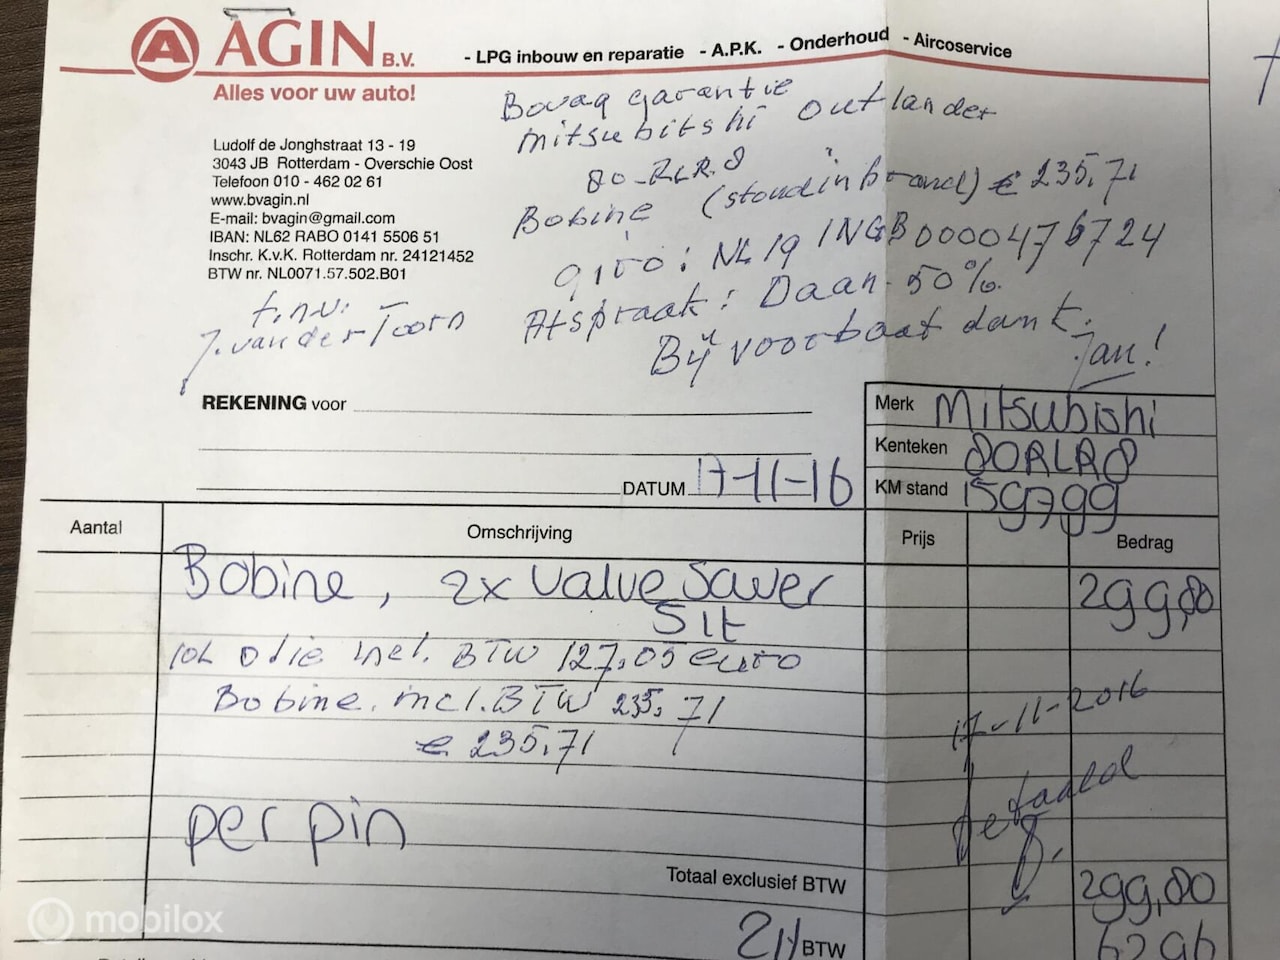 A AGIN B.V. - LPG inbouw en reparatie - A.P.K. - Onderhoud - Aircoservice
Alles voor uw auto!
Ludolf de Jonghstraat 13 - 19
3043 JB Rotterdam - Overschie Oost
Telefoon 010 - 462 02 61
www.bvagin.nl
E-mail: bvagin@gmail.com
IBAN: NL62 RABO 0141 5506 51
Inschr. K.v.K. Rotterdam nr. 24121452
BTW nr. NL0071.57.502.B01
Bovag garantie
mitsubitshi outlander
80-RLR8
Bobine (stond in brand) € 235,71
giro: NL 19 INGB0000476724
t.n.v.
J. van der Toorn
Afspraak: Daan 50%.
Bij voorbaat dank.
Jan!
REKENING voor
DATUM 17-11-16
Merk Mitsubishi
Kenteken 80RLR8
KM stand 159799
Aantal Omschrijving Prijs Bedrag
Bobine, 2x Valve Saver 299,80
Sit
10L olie incl. BTW 127,05 euro
Bobine incl. BTW 235,71
€ 235,71
17-11-2016
betaald
per pin
Totaal exclusief BTW 299,80
21 BTW 62 96
mobilox